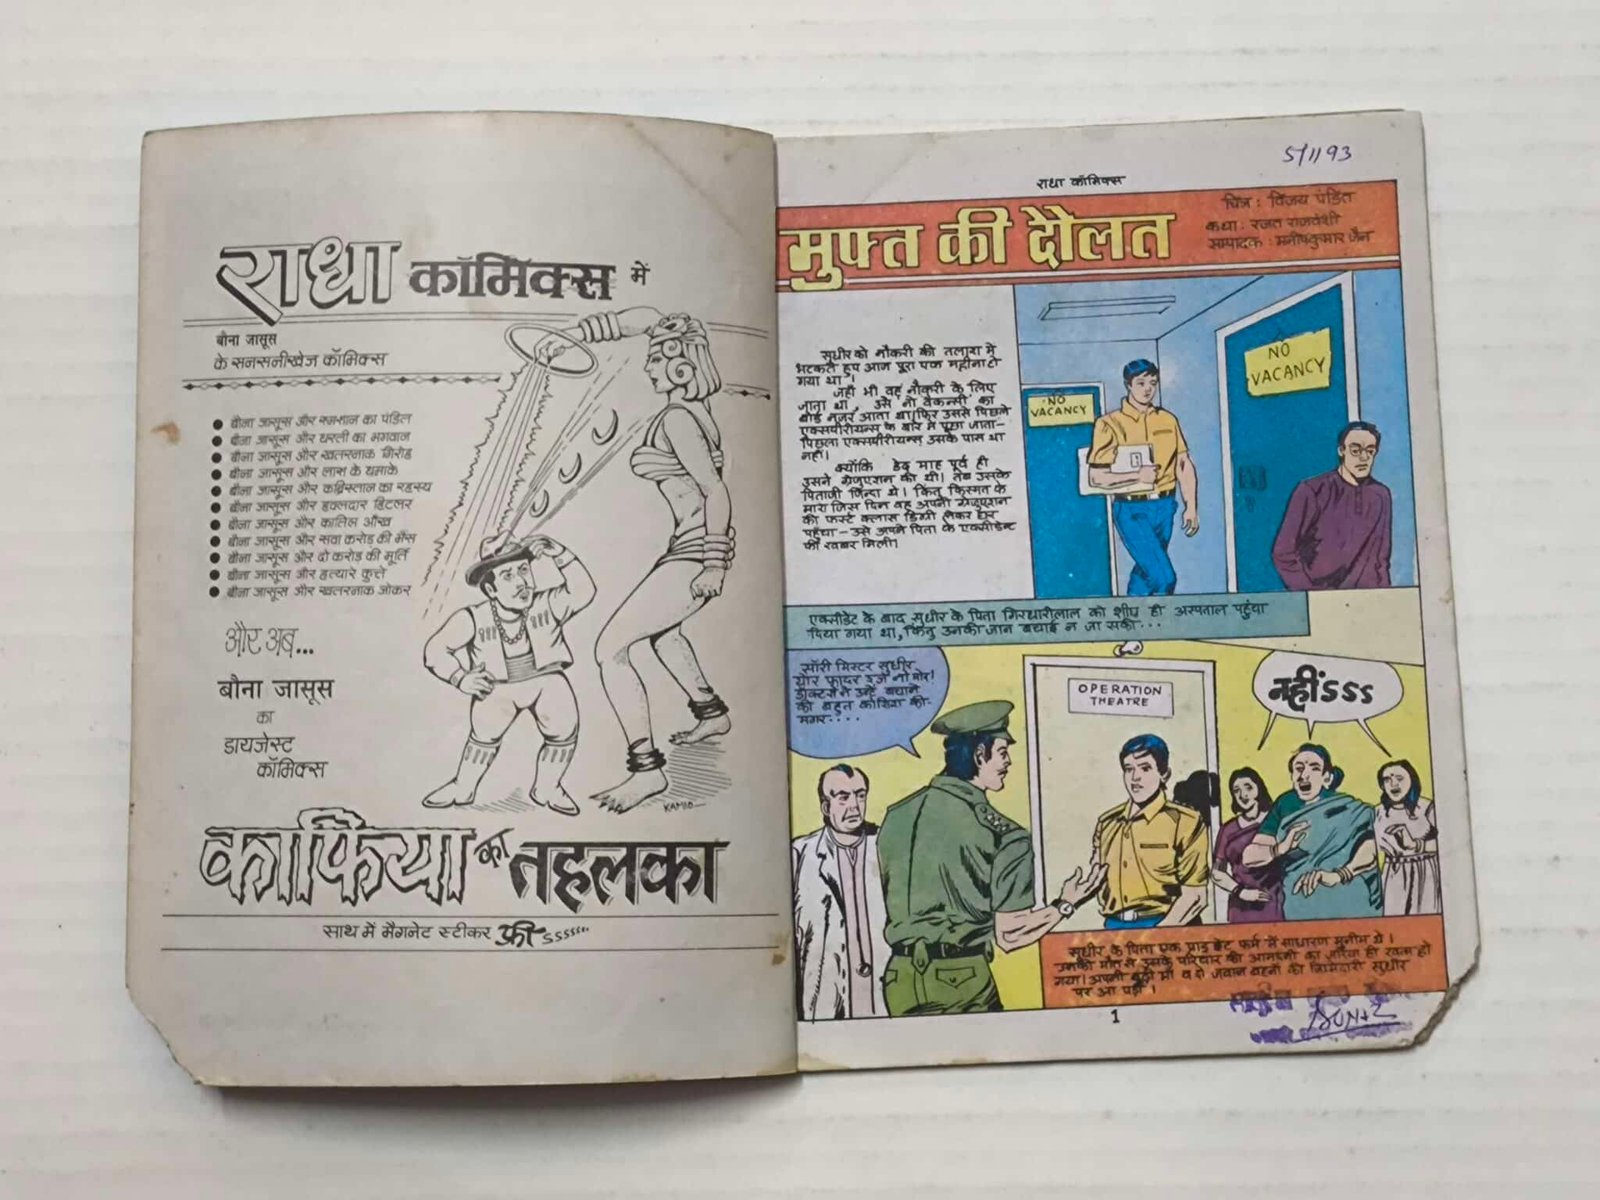 राधा कॉमिक्स में
बौना जासूस
के सनसनीखेज कॉमिक्स
बौना जासूस और श्मशान का पंडित
बौना जासूस और धरती का भगवान
बौना जासूस और खतरनाक गिरोह
बौना जासूस और लाश के धमाके
बौना जासूस और कब्रिस्तान का रहस्य
बौना जासूस और हवलदार हिटलर
बौना जासूस और कातिल आँख
बौना जासूस और सवा करोड़ की भैंस
बौना जासूस और दो करोड़ की मूर्ति
बौना जासूस और हत्यारे कुत्ते
बौना जासूस और खतरनाक जोकर
और अब...
बौना जासूस
का
डायजेस्ट
कॉमिक्स
काफिया का तहलका
साथ में मैगनेट स्टीकर फ्री ssssss
5/1/93
राधा कॉमिक्स
मुफ्त की दौलत
चित्र : विजय पंडित
कथा : रजत राजवंशी
सम्पादक : मनीषकुमार जैन
सुधीर को नौकरी की तलाश में
भटकते हुए आज पूरा एक महीना हो
गया था।
जहाँ भी वह नौकरी के लिए
जाता था, उसे नो वैकन्सी का
बोर्ड नजर आता था। फिर उससे पिछले
एक्सपीरीयन्स के बारे में पूछा जाता-
पिछला एक्सपीरीयन्स उसके पास था
नहीं।
क्योंकि डेढ़ माह पूर्व ही
उसने ग्रेजुएशन की थी। तब उसके
पिताजी जिन्दा थे। किंतु किस्मत के
मारा जिस दिन वह अपनी ग्रेजुएशन
की फर्स्ट क्लास डिग्री लेकर घर
पहुँचा- उसे अपने पिता के एक्सीडेन्ट
की खबर मिली।
NO
VACANCY
NO
VACANCY
एक्सीडेंट के बाद सुधीर के पिता गिरधारीलाल को शीघ्र ही अस्पताल पहुंचा
दिया गया था, किंतु उनकी जान बचाई न जा सकी...
सॉरी मिस्टर सुधीर,
योर फादर इज नो मोर!
डॉक्टर्स ने उन्हें बचाने
की बहुत कोशिश की-
मगर....
OPERATION
THEATRE
नहींsss
सुधीर के पिता एक प्राइवेट फर्म में साधारण मुनीम थे।
उनकी मौत से उसके परिवार की आमदनी का जरिया ही खत्म हो
गया। अपनी बूढ़ी माँ व दो जवान बहनों की जिम्मेदारी सुधीर
पर आ पड़ी।
1